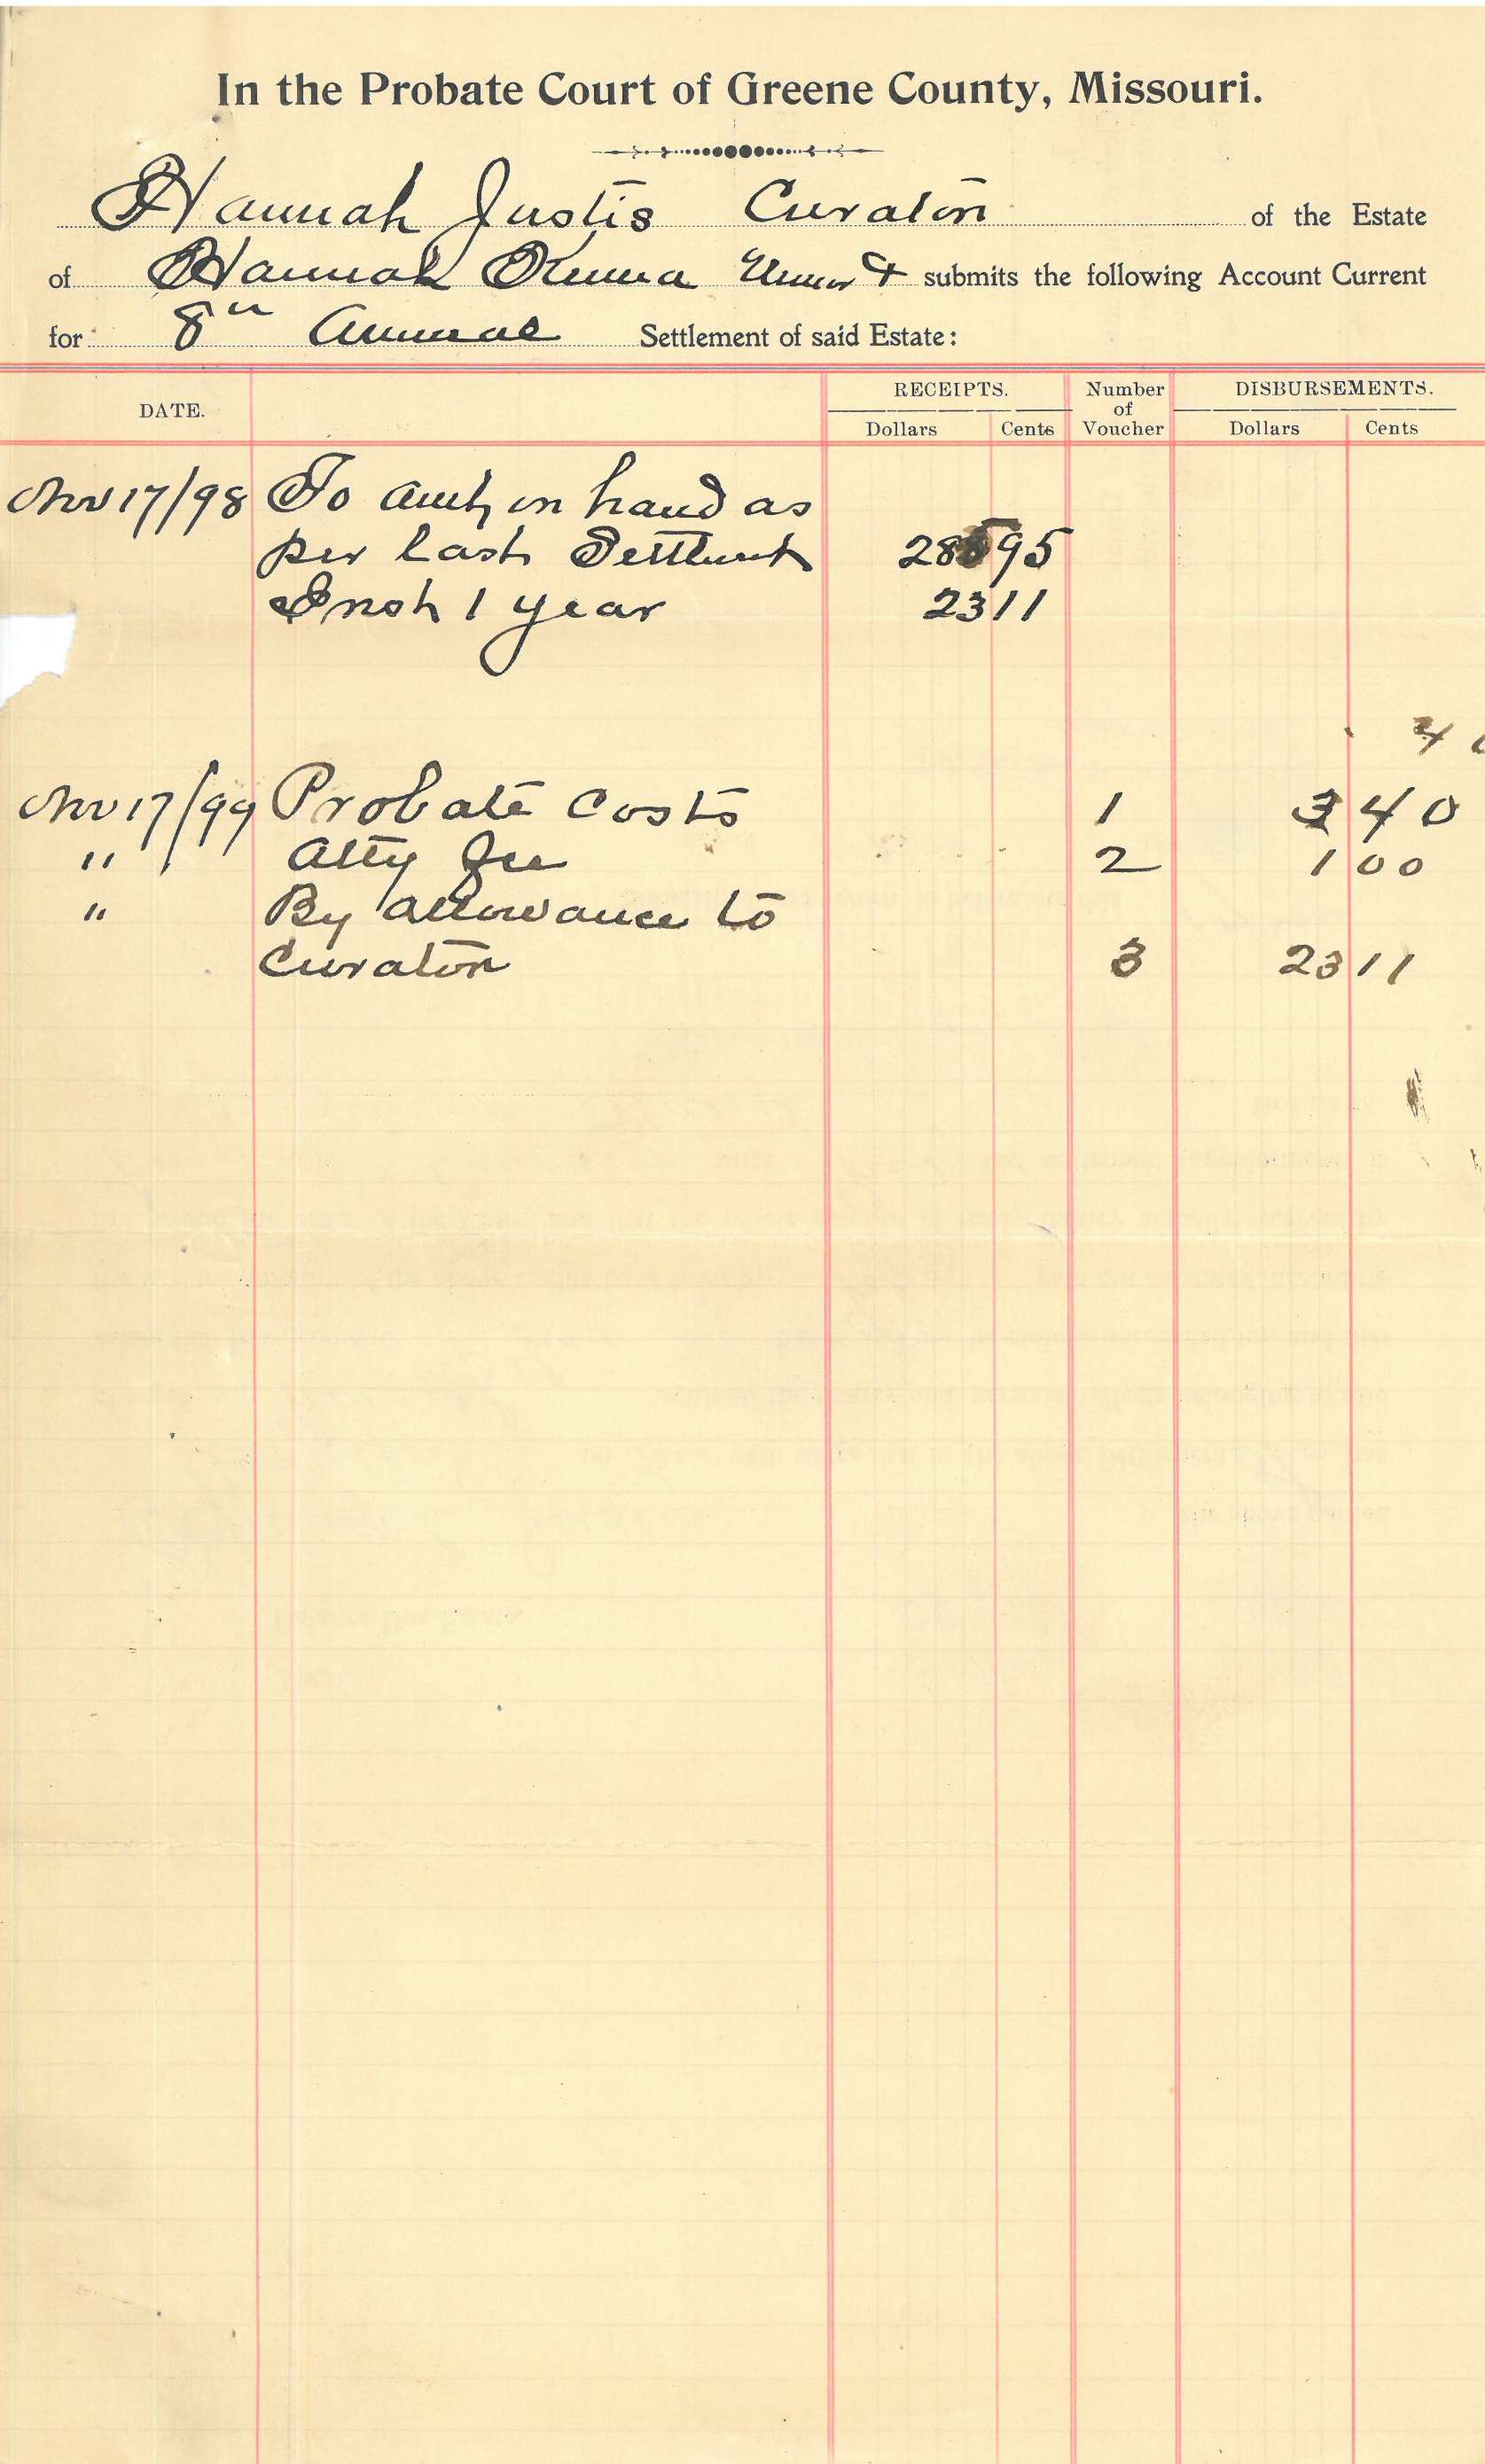 In the Probate Court of Greene County, Missouri.
Hannah Justis Curator of the Estate
of Hannah submits the following Account Current
for 8th Annual Settlement of said Estate:
DATE. RECEIPTS. Number of Voucher DISBURSEMENTS.
Dollars Cents Dollars Cents
Nov 17/98 To amt, on hand as
per last Settlment 28 95
Inst 1 year 23 11
Nov 17/99 Probate Costs 1 3 40
" Atty fee 2 1 00
" By allowance to
Curator 3 23 11